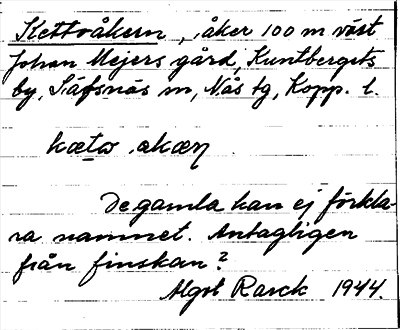 Kettoåkern, åker 100 m väst
Johan Mejers gård, Kuntbergets
by, Säfsnäs sn, Nås tg, Kopp. l.
De gamla kan ej förkla-
ra namnet. Antagligen
från finskan?
Algot Rarck 1944.